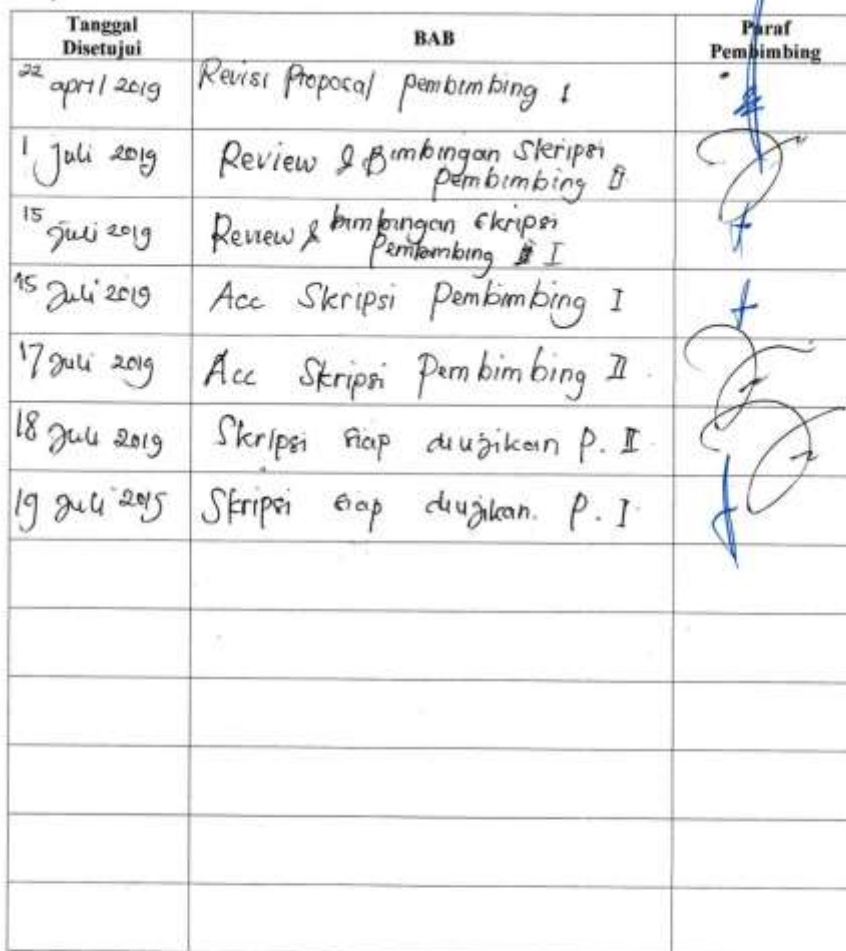 Tanggal Disetujui
BAB
Paraf Pembimbing
22 april 2019
Revisi Proposal pembimbing 1
1 Juli 2019
Review & Bimbingan Skripsi
Pembimbing II
15 Juli 2019
Review & bimbingan Skripsi
Pembimbing I
15 Juli 2019
Acc Skripsi Pembimbing I
17 Juli 2019
Acc Skripsi Pembimbing II
18 Juli 2019
Skripsi siap diujikan P. II
19 Juli 2019
Skripsi siap diujikan. P. I